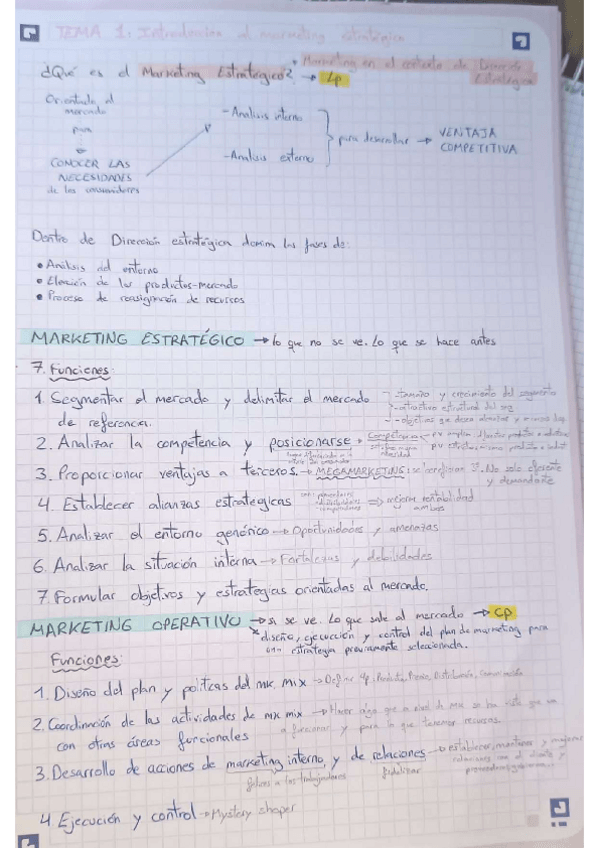 TEMA 1: Introducción al marketing estratégico
¿Qué es el Marketing Estratégico? → Lp
* Marketing en el contexto de Dirección Estratégica
Orientada al mercado
para
CONOCER LAS NECESIDADES
de los consumidores
- Analisis interno
- Analisis externo
para desarrollar → VENTAJA COMPETITIVA
Dentro de Dirección estratégica las fases de:
• Análisis del entorno
• Elección de los productos-mercado
• Proceso de reasignación de recursos
MARKETING ESTRATÉGICO → lo que no se ve. Lo que se hace antes
7. Funciones:
1. Segmentar el mercado y delimitar el mercado de referencia.
- tamaño y crecimiento del segmento
- atractivo estructural del
- objetivos que desea alcanzar y
2. Analizar la competencia y posicionarse
Competencia
3. Proporcionar ventajas a terceros. → MEGAMARKETING: se benefician 3º. No solo oferente y demandante
4. Establecer alianzas estrategicas
con proveedores
distribuidores
competidores
⇒ mejorar rentabilidad de ambos
5. Analizar el entorno genérico → Oportunidades y amenazas
6. Analizar la situación interna → Fortalezas y debilidades
7. Formular objetivos y estrategias orientadas al mercado.
MARKETING OPERATIVO → si se ve. Lo que sale al mercado → CP
* diseño, ejecución y control del plan de marketing para una estrategia previamente seleccionada.
Funciones:
1. Diseño del plan y políticas del mk mix → Define 4p. Producto, Precio, Distribución, Comunicación
2. Coordinación de las actividades de mk mix → Hacer algo que a nivel de MK se ha visto que va
con otras áreas funcionales a funcionar y para lo que tenemos recursos.
3. Desarrollo de acciones de marketing interno, y de relaciones → establecer, mantener y mejorar
relaciones con el cliente y
felices a los trabajadores
fidelizar
proveedores,
4. Ejecución y control → Mystery shoper